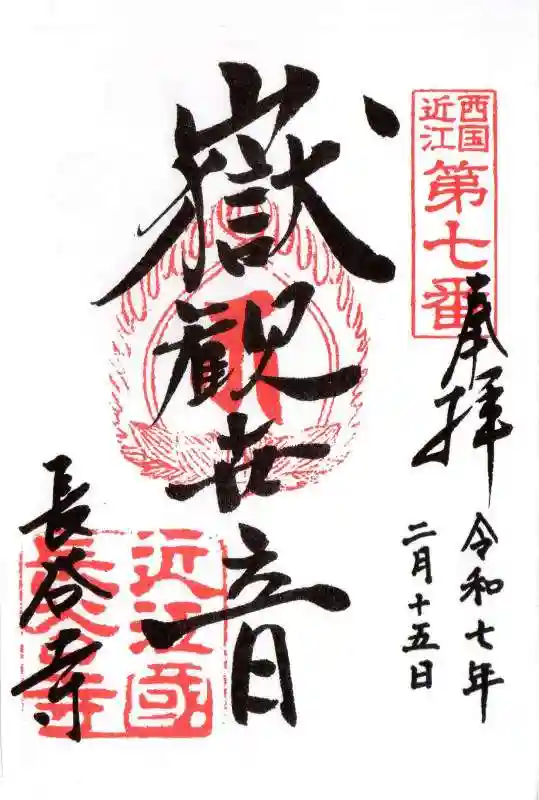 西国
近江
第七番
奉拝
令和七年
二月十五日
嶽観世音
長谷寺
近江國
長谷寺